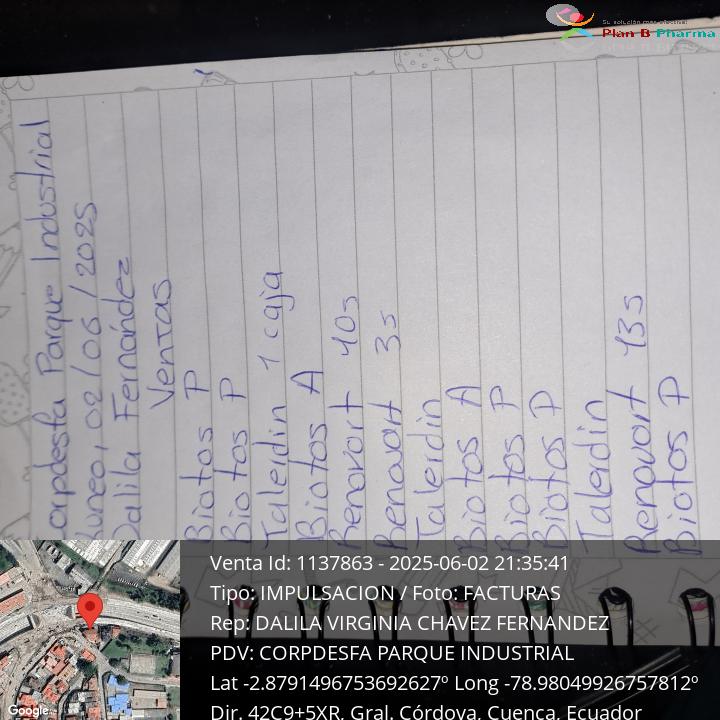 Su solución más efectiva
Plan B Pharma
Corpdesfa Parque Industrial
Lunes, 02/06/2025
Dalila Fernández
Ventas
Biotos P
Biotos P
Taleidin 1 caja
Biotos A
Renovort 40s
Renovort 3s
Taleidin
Biotos A
Biotos P
Biotos P
Taleidin
Renovort 43s
Biotos P
Venta Id: 1137863 - 2025-06-02 21:35:41
Tipo: IMPULSACION / Foto: FACTURAS
Rep: DALILA VIRGINIA CHAVEZ FERNANDEZ
PDV: CORPDESFA PARQUE INDUSTRIAL
Lat -2.8791496753692627º Long -78.98049926757812º
Dir. 42C9+5XR, Gral. Córdova, Cuenca, Ecuador
Google